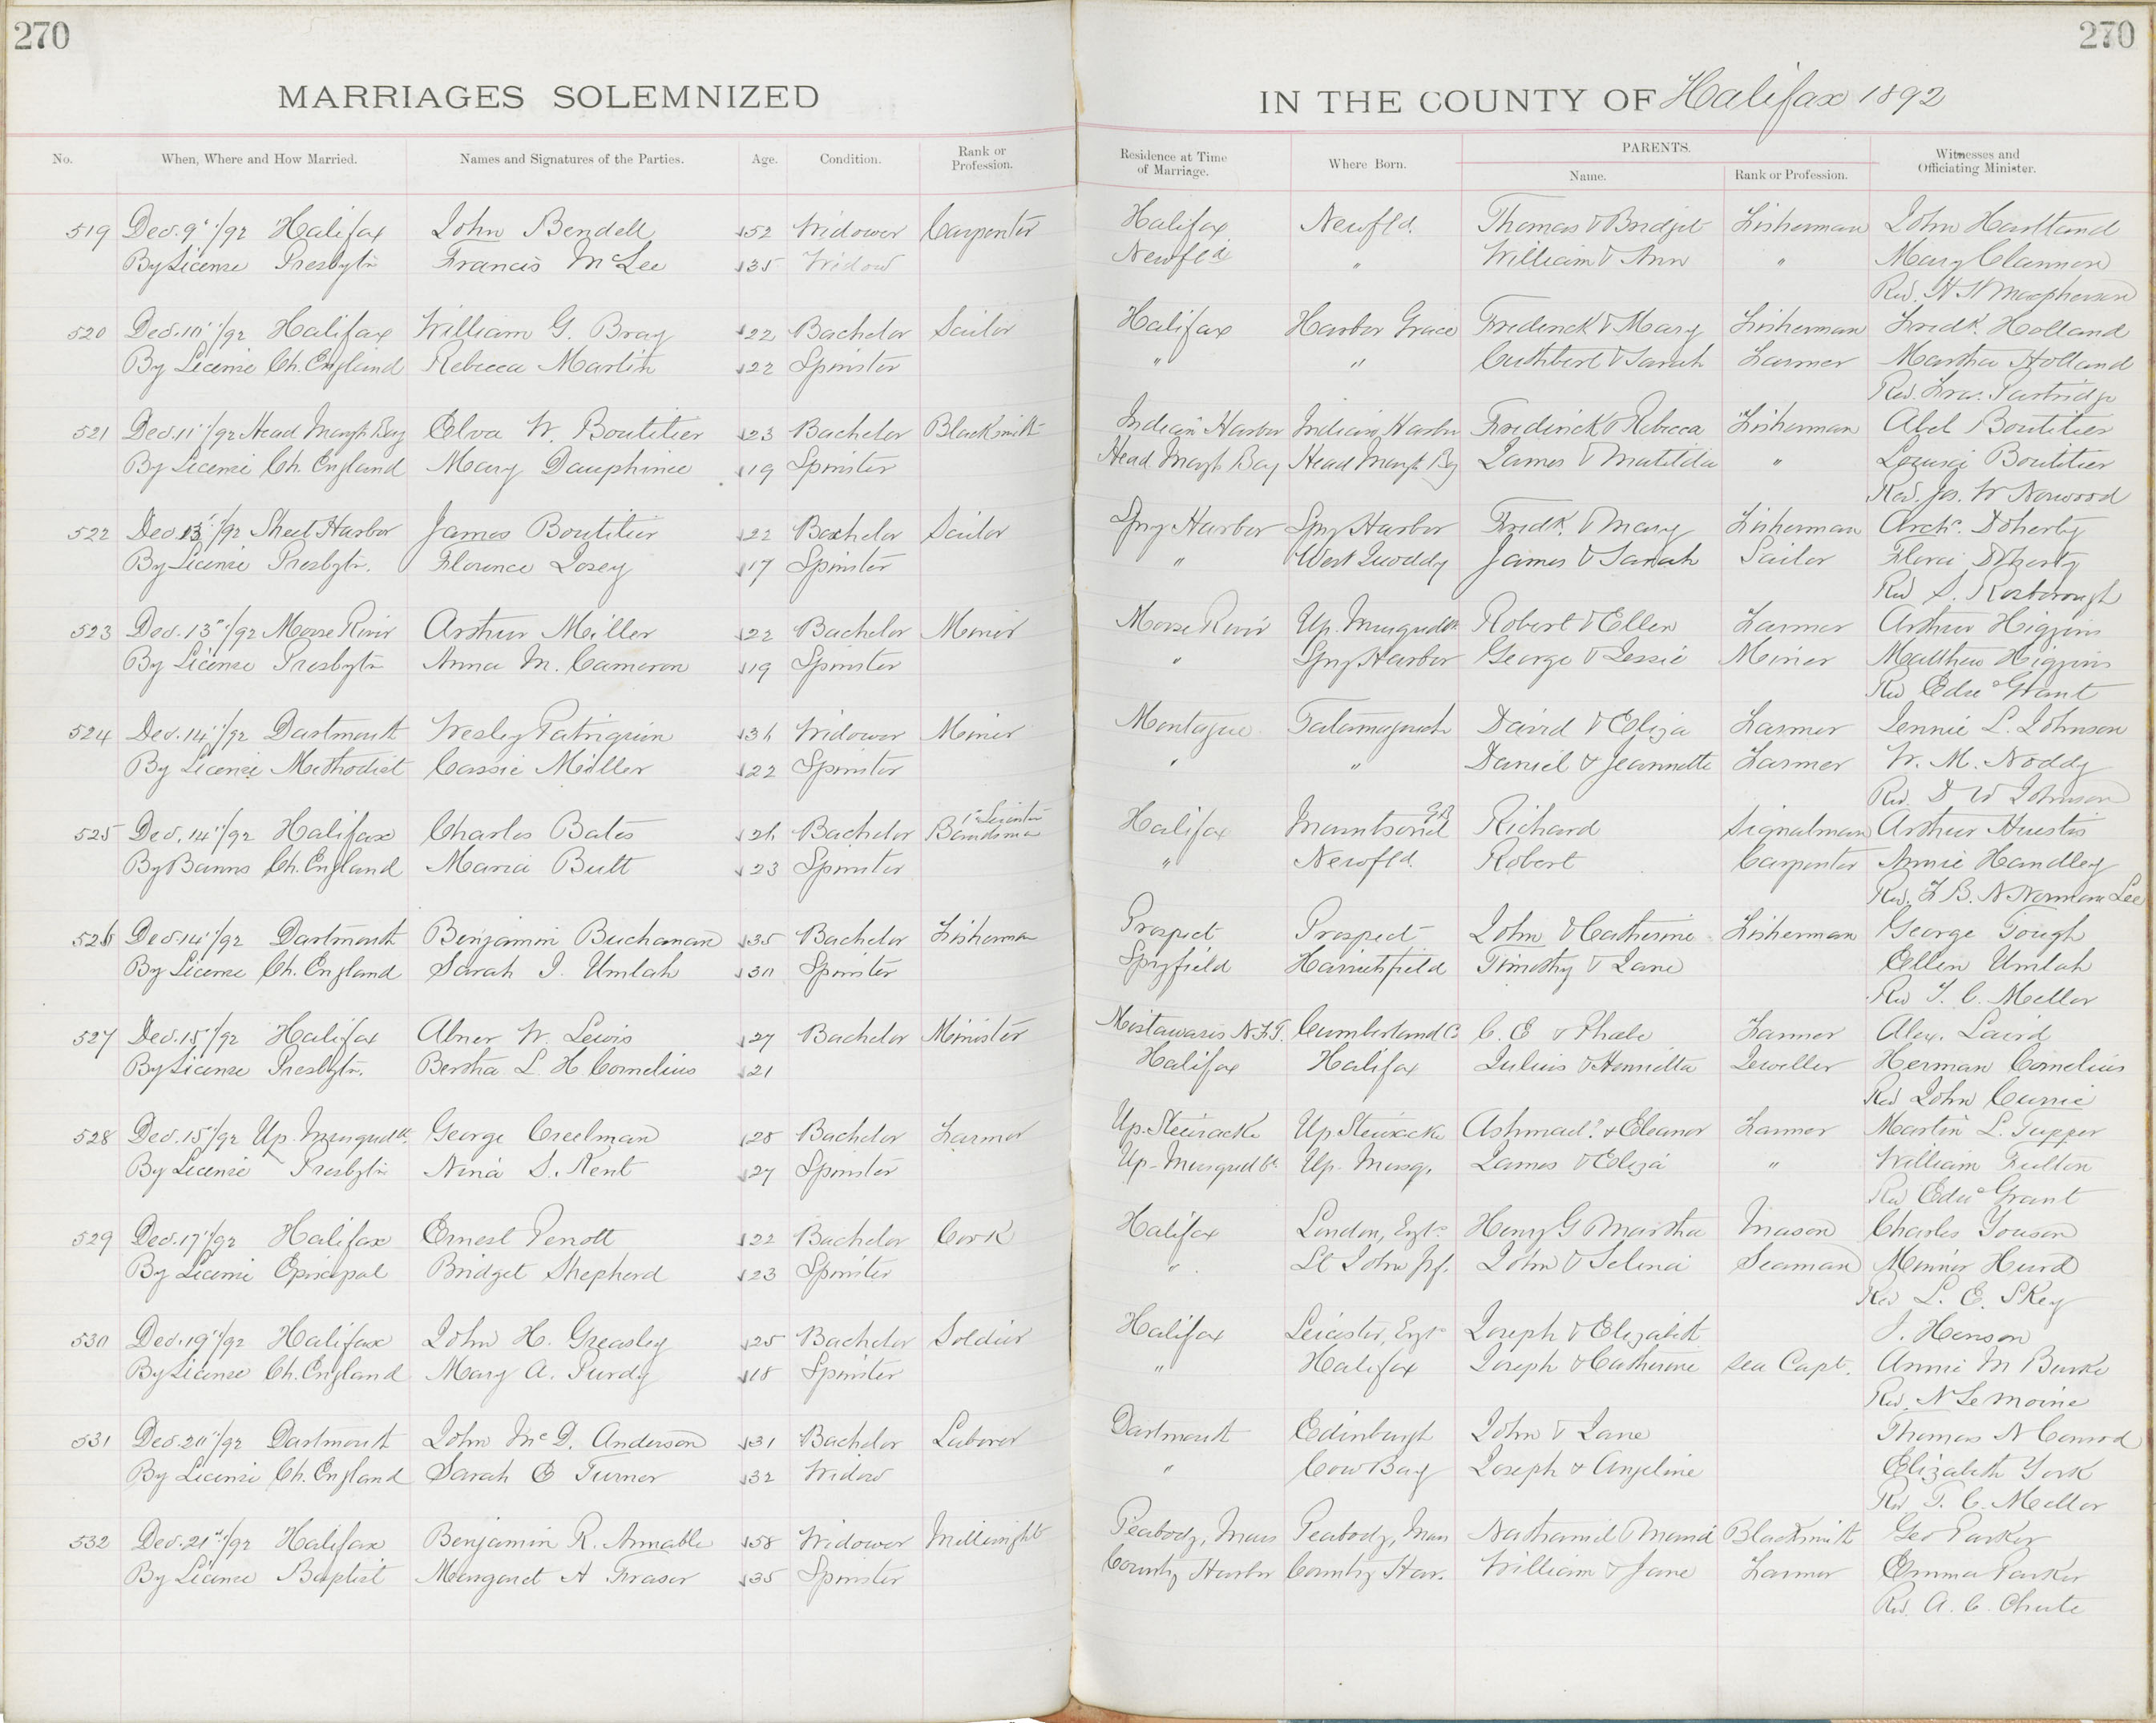 270
270
MARRIAGES SOLEMNIZED
IN THE COUNTY OF Halifax 1892
No. When, Where and How Married. Names and Signatures of the Parties. Age. Condition. Rank or Profession. Residence at Time of Marriage. Where Born. PARENTS. Name. Rank or Profession. Witnesses and Officiating Minister.
519 Dec. 9"/92 Halifax John Bendell 52 Widower Carpenter Halifax Newfld. Thomas & Bridget Fisherman John Hartland
By License Presbytn Francis McLee 35 Widow Newfld " William & Ann " Mary Clannon
Rev. H H Macpherson
520 Dec. 10"/92 Halifax William G. Bray 22 Bachelor Sailor Halifax Harbor Grace Frederick & Mary Fisherman Fredk. Holland
By License Ch. England Rebecca Martin 22 Spinster " " Cuthbert & Sarah Farmer Martha Holland
Rev. Fras. Partridge
521 Dec. 11"/92 Head Margt. Bay Elva W. Boutilier 23 Bachelor Blacksmith Indian Harbor Indian Harbor Frederick & Rebecca Fisherman Abel Boutilier
By License Ch. England Mary Dauphinee 19 Spinster Head Margt. Bay Head Margt. By James & Matilda " Boutilier
Rev. Jos. W Norwood
522 Dec. 13"/92 Sheet Harbor James Boutilier 22 Bachelor Sailor Spry Harbor Spry Harbor Fredk. & Mary Fisherman Archd. Doherty
By License Presbytn. Florence Josey 17 Spinster " West Quoddy James & Sarah Sailor Flora Doherty
Rev S. Rosborough
523 Dec. 13"/92 Moose River Arthur Miller 22 Bachelor Miner Moose River Up. Musqudbt. Robert & Ellen Farmer Arthur Higgins
By License Presbytn Anna M. Cameron 19 Spinster " Spry Harbor George & Jessie Miner Matthew Higgins
Rev Edw Grant
524 Dec. 14"/92 Dartmouth Wesley Patriquin 36 Widower Miner Montague Tatamagouche David & Eliza Farmer Jennie L. Johnson
By License Methodist Cassie Miller 22 Spinster " " Daniel & Jeannette Farmer W. M. Noddy
Rev. D W Johnson
525 Dec. 14"/92 Halifax Charles Bates 26 Bachelor 1st Leicester Bandsman Halifax G.B. Richard Signalman Arthur Huestis
By Banns Ch. England Maria Butt 23 Spinster " Newfld. Robert Carpenter Annie Handley
Rev. F B. N Norman Lee
526 Dec. 14"/92 Dartmouth Benjamin Buchanan 35 Bachelor Fisherman Prospect Prospect John & Catherine Fisherman George Tough
By License Ch. England Sarah J. Umlah 30 Spinster Spryfield Harrietsfield Timothy & Jane Ellen Umlah
Rev T. C. Mellor
527 Dec. 15"/92 Halifax Abner W. Lewis 27 Bachelor Minister Mistawasis N.W.T. Cumberland Co C. E & Phebe Farmer Alex. Laird
By License Presbytn. Bertha L. H Cornelius 21 Halifax Halifax Julius & Henrietta Jeweller Herman Cornelius
Rev John Currie
528 Dec. 15"/92 Up. Musqudbt. George Creelman 28 Bachelor Farmer Up. Stewiacke Up Stewiacke & Eleanor Farmer Martin L. Tupper
By License Presbytn Nina S. Kent 27 Spinster Up. Musqudbt. Up. Musq. James & Eliza " William Fulton
Rev Edw Grant
529 Dec. 17"/92 Halifax Ernest Perrott 22 Bachelor Cook Halifax London, Engd. Henry G Martha Mason Charles Youson
By License Episcopal Bridget Shepherd 23 Spinster " St John Nf. John & Selina Seaman Minnie Hurd
Rev L. E. Skey
530 Dec. 19"/92 Halifax John H. Greasley 25 Bachelor Soldier Halifax Leicester, Engd Joseph & Elizabeth J. Henson
By License Ch. England Mary A. Purdy 18 Spinster " Halifax Joseph & Catherine Sea Capt. Annie M Burke
Rev. N LeMoine
531 Dec. 20"/92 Dartmouth John McD. Anderson 31 Bachelor Laborer Dartmouth Edinburgh John & Jane Thomas N Conrod
By License Ch. England Sarah E Turner 32 Widow " Cow Bay Joseph & Angeline Elizabeth York
Rev T. C. Mellor
532 Dec. 21st/92 Halifax Benjamin R. Annable 58 Widower Millwright Peabody, Mass Peabody, Mass Nathaniel & Maria Blacksmith Geo Parker
By License Baptist Margaret A Fraser 35 Spinster Country Harbor Country Har. William & Jane Farmer Emma Parker
Rev. A. C. Chute